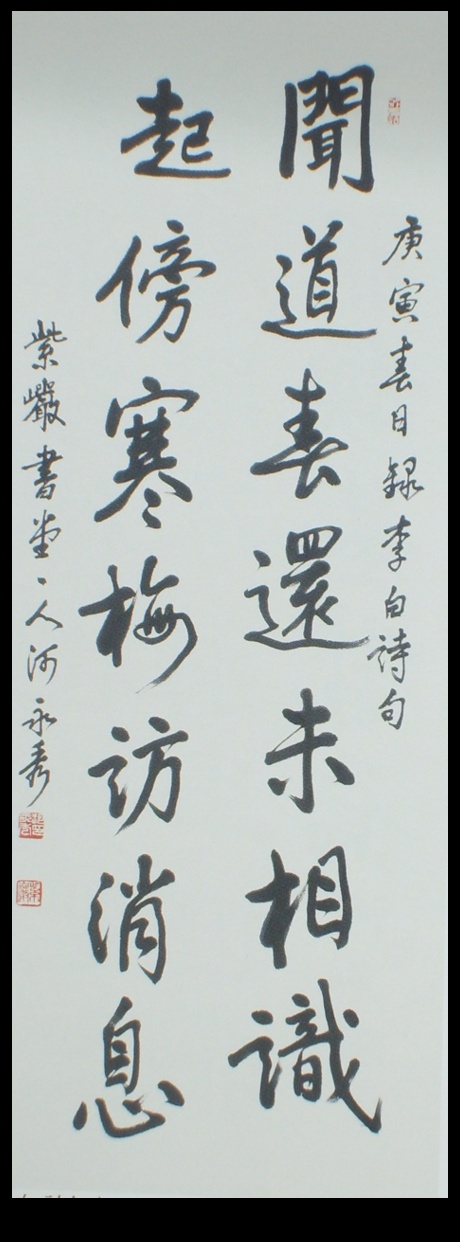 庚寅春日録李白詩句
聞道春還未相識
起傍寒梅訪消息
紫巖書堂、人河永秀